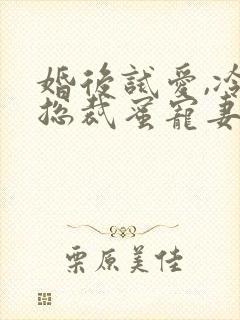 婚後試愛,冷
總裁蜜寵妻
栗原美佳